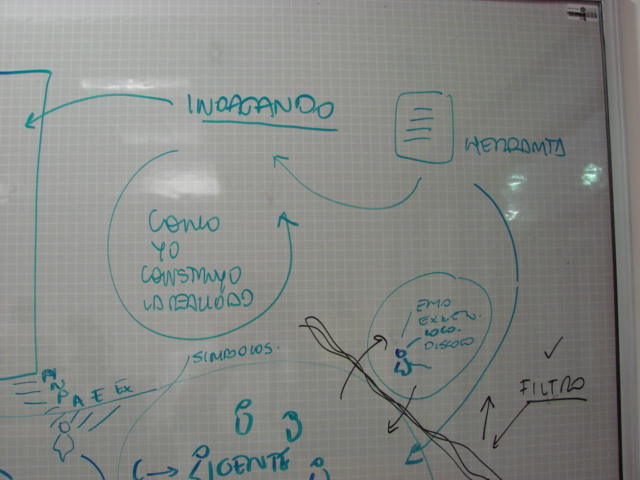 INDAGANDO
HERRAMTA
COMO
YO
CONSTRUYO
LA REALIDAD
EMO
DISCO
SIMBOLOS.
FILTRO
P A E EX
GENTE